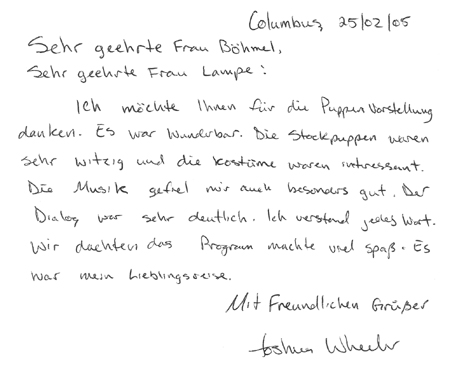 Columbus, 25/02/05
Sehr geehrte Frau Böhmel,
Sehr geehrte Frau Lampe:
Ich möchte Ihnen für die Puppen Vorstellung
danken. Es war Wunderbar. Die Stockpuppen waren
sehr witzig und die Kostüme waren intressant.
Die Musik gefiel mir auch besonders gut. Der
Dialog war sehr deutlich. Ich verstand jedes Wort.
Wir dachten das Program machte viel spaß. Es
war mein Lieblingsreise.
Mit Freundlichen Grüßer
Joshua Wheeler